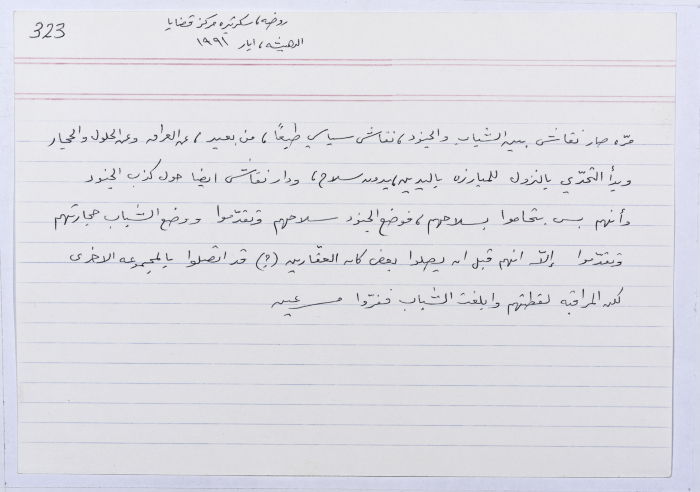 323
روضه، سكرتيره مركز قضايا
الدهيشه، ايار ١٩٩١
مرّه صار نقاش بين الشباب والجنود، نقاش سياسي طبعًا، من بعيد، عن العراق وعن الحلول والحجار
وبدأ التحدّي بالنزول للمبارزه باليدين، بدون سلاح، ودار نقاش ايضا حول كذب الجنود
وأنهم بس بتحاموا بسلاحهم، فوضع الجنود سلاحهم وتقدّموا ووضع الشباب حجارتهم
وتقدّموا إلاّ انهم قبل ان يصلوا بعض كان العقّارين (؟) قد اتصلوا بالمجموعه الاخرى
لكن المراقبه لقطتهم وابلغت الشباب ففرّوا مسرعين